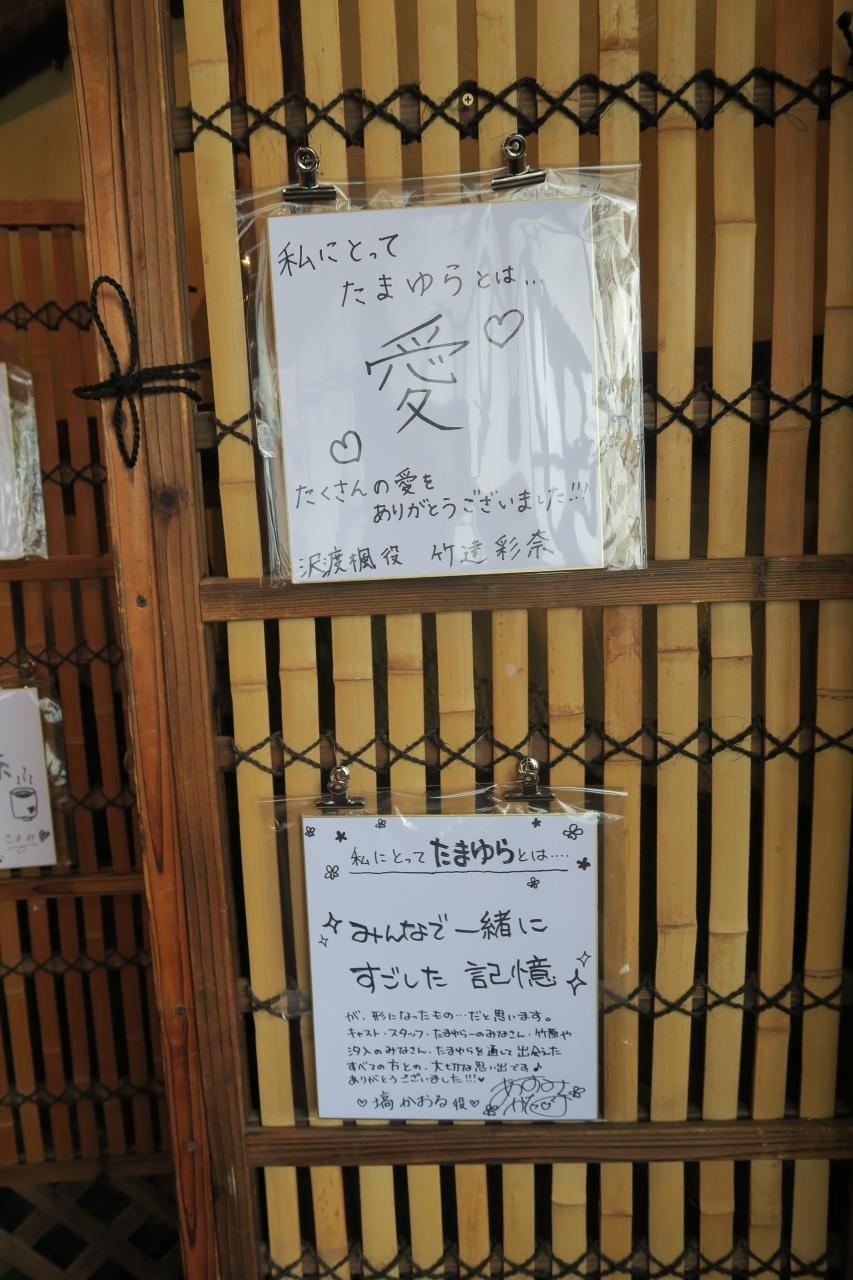 私にとって
たまゆらとは…
愛
たくさんの愛を
ありがとうございました!!!
沢渡楓役 竹達彩奈
私にとってたまゆらとは‥‥
みんなで一緒に
すごした 記憶
が、形になったもの…だと思います。
キャスト・スタッフ・たまゆらーのみなさん・竹原や
汐入のみなさん・たまゆらを通して出会えた
すべての方との、大切な思い出です♪
ありがとうございました!!!♥
♡塙かおる役♡